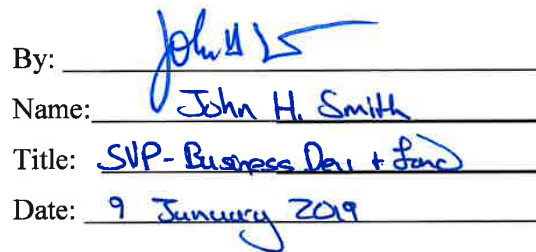 By: John H
Name: John H. Smith
Title: SVP-Business Dev + Land
Date: 9 January 2019